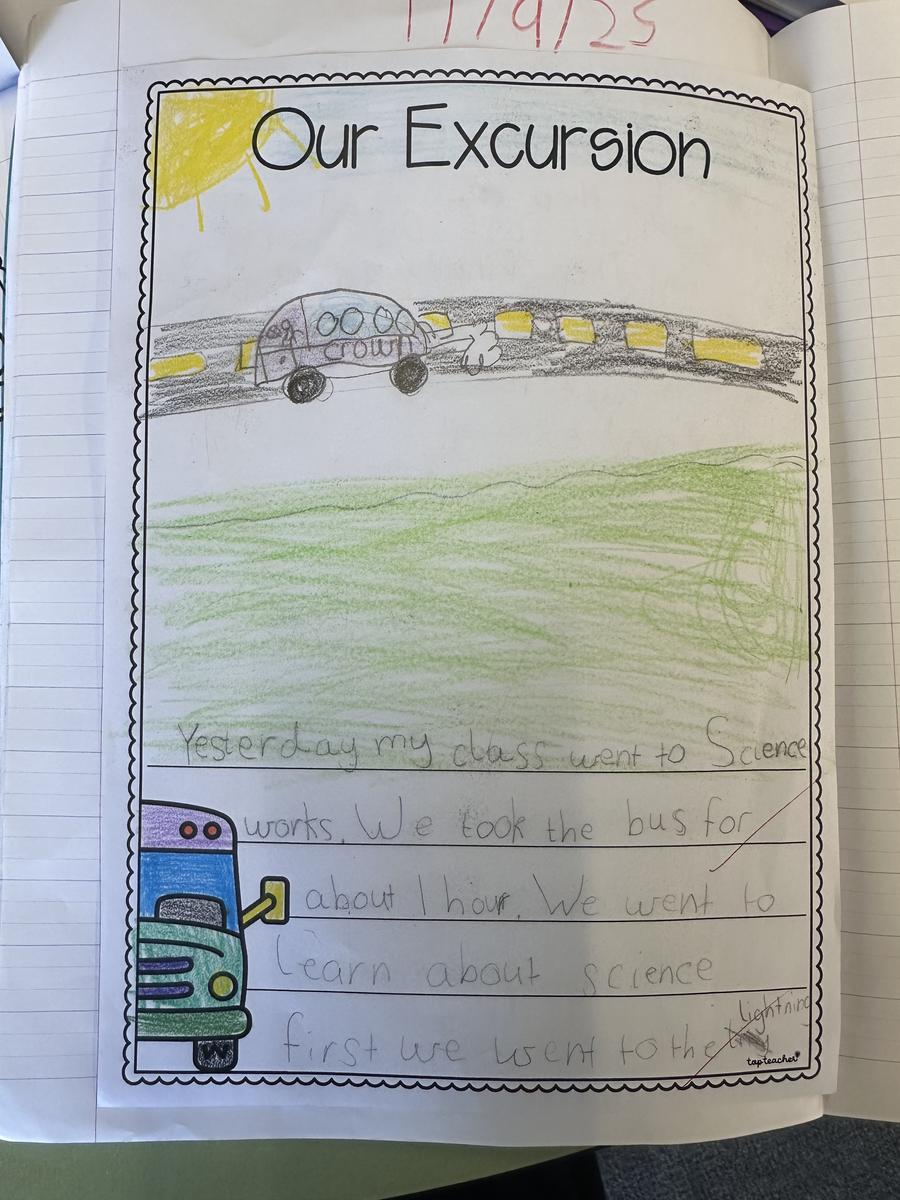 11/9/25
Our Excursion
crown
Yesterday my class went to Science
works. We took the bus for
about 1 hour. We went to
learn about science
first we went to the lightning
tapteacher